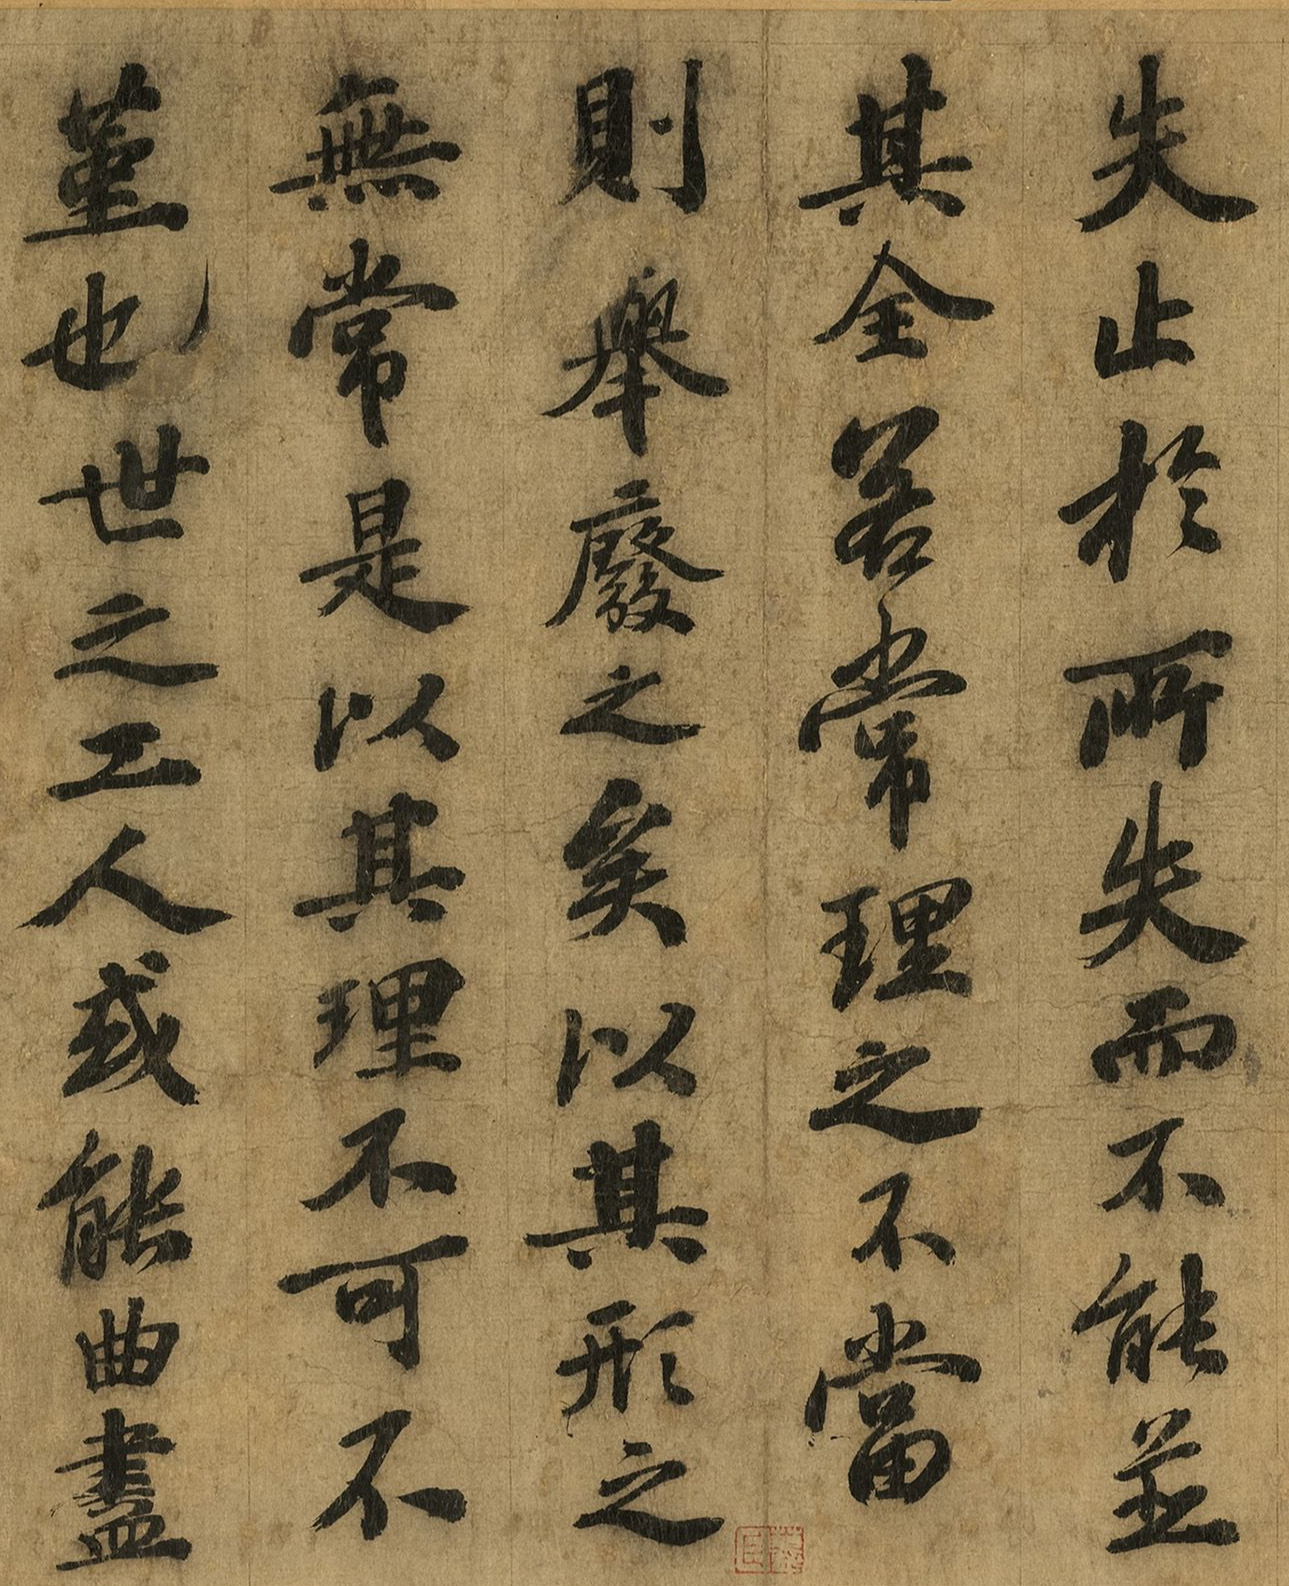 失止於所失而不能並
其全若常理之不當
則舉廢之矣以其形之
無常是以其理不可不
堇也世之工人或能曲盡